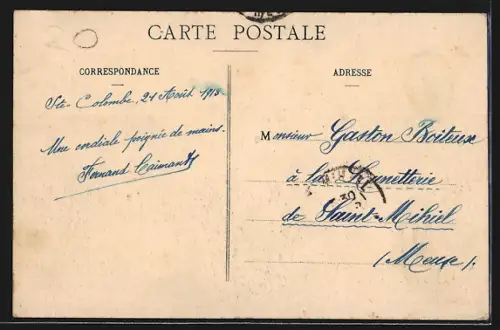 CARTE POSTALE
CORRESPONDANCE
Ste. Colombe, 21 Août 1913
Une cordiale poignée de mains.
Fernand
ADRESSE
Monsieur Gaston Boiteux
à la Lunetterie
de Saint-Mihiel
(Meuse).